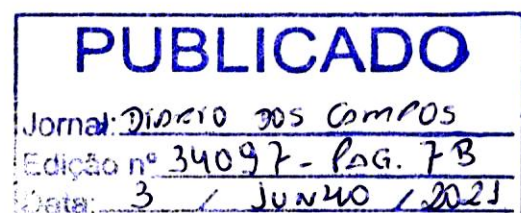 PUBLICADO
Jornal: DIÁRIO DOS CAMPOS
Edição nº 34097 - PAG. 7B
Data: 3 / JUNHO / 2021